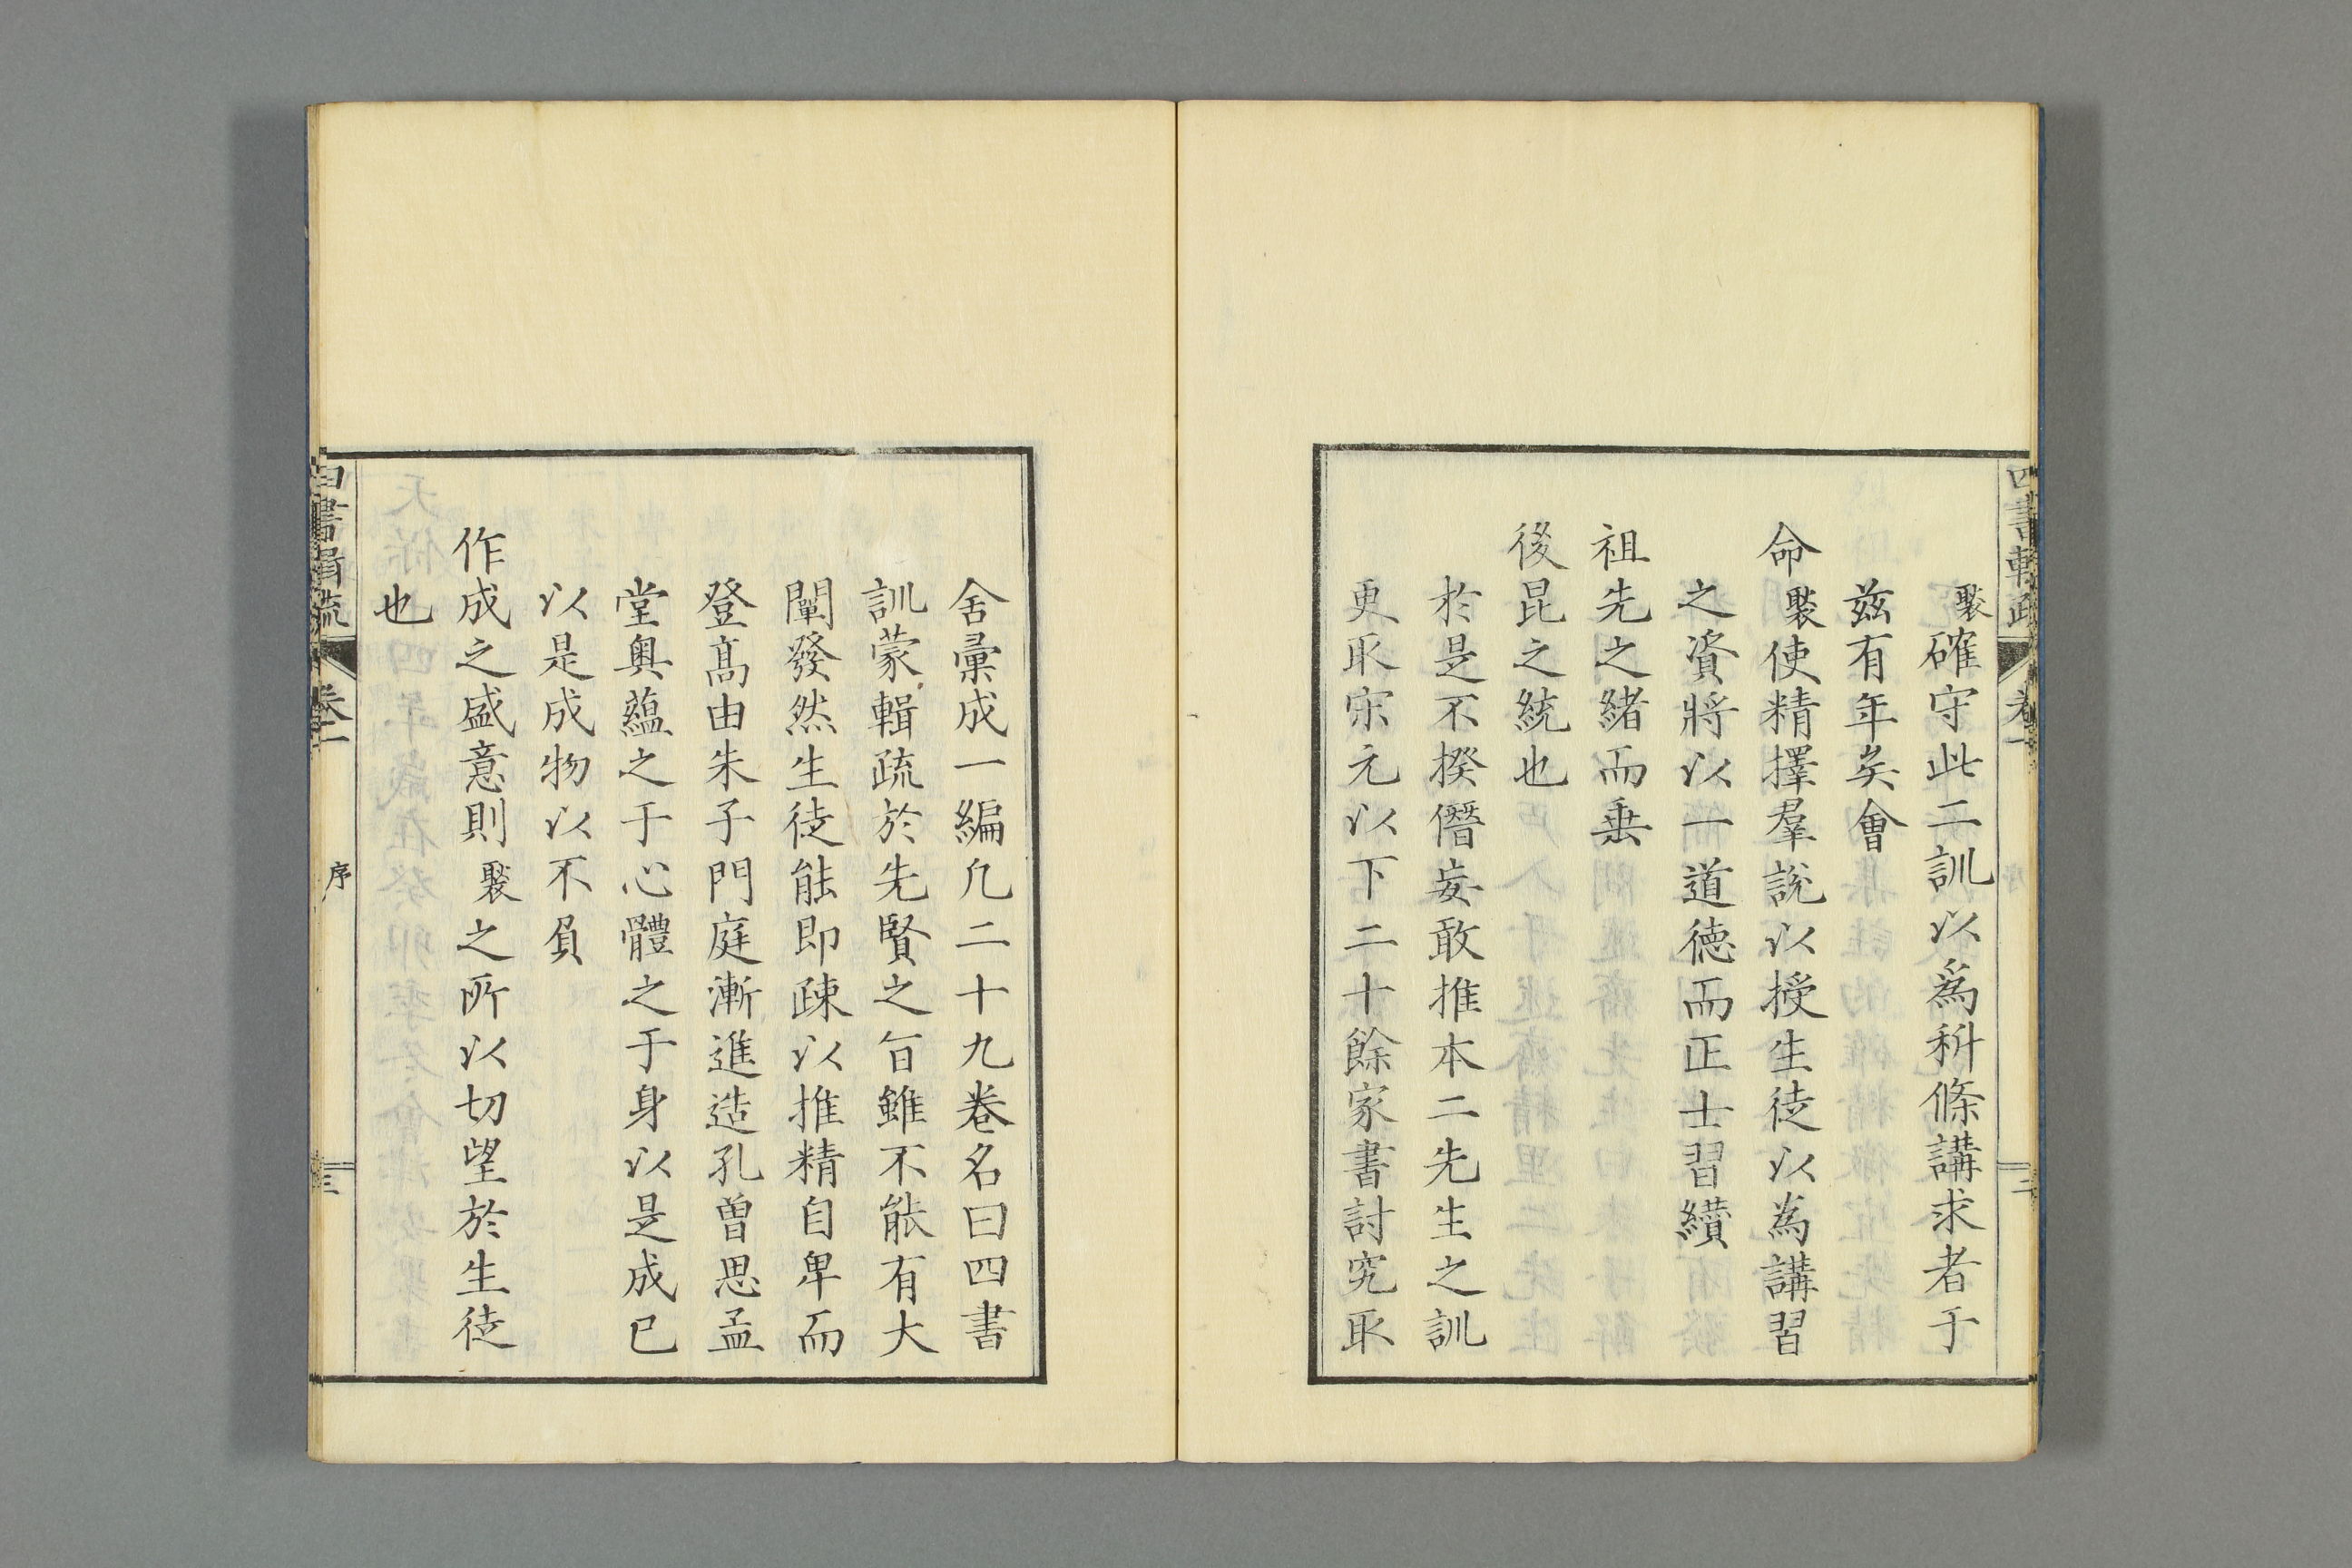 褧確守此二訓以爲科條講求者于
茲有年矣會
命褧使精擇羣說以授生徒以為講習
之資將以一道德而正士習纘
祖先之緒而垂
後昆之統也
於是不揆僭妄敢推本二先生之訓
更取宋元以下二十餘家書討究取
舍彙成一編凡二十九卷名曰四書
訓蒙輯疏於先賢之旨雖不能有大
闡發然生徒能即疎以推精自卑而
登髙由朱子門庭漸進造孔曽思孟
堂奥蘊之于心體之于身以是成已
以是成物以不負
作成之盛意則褧之所以切望於生徒
也
序